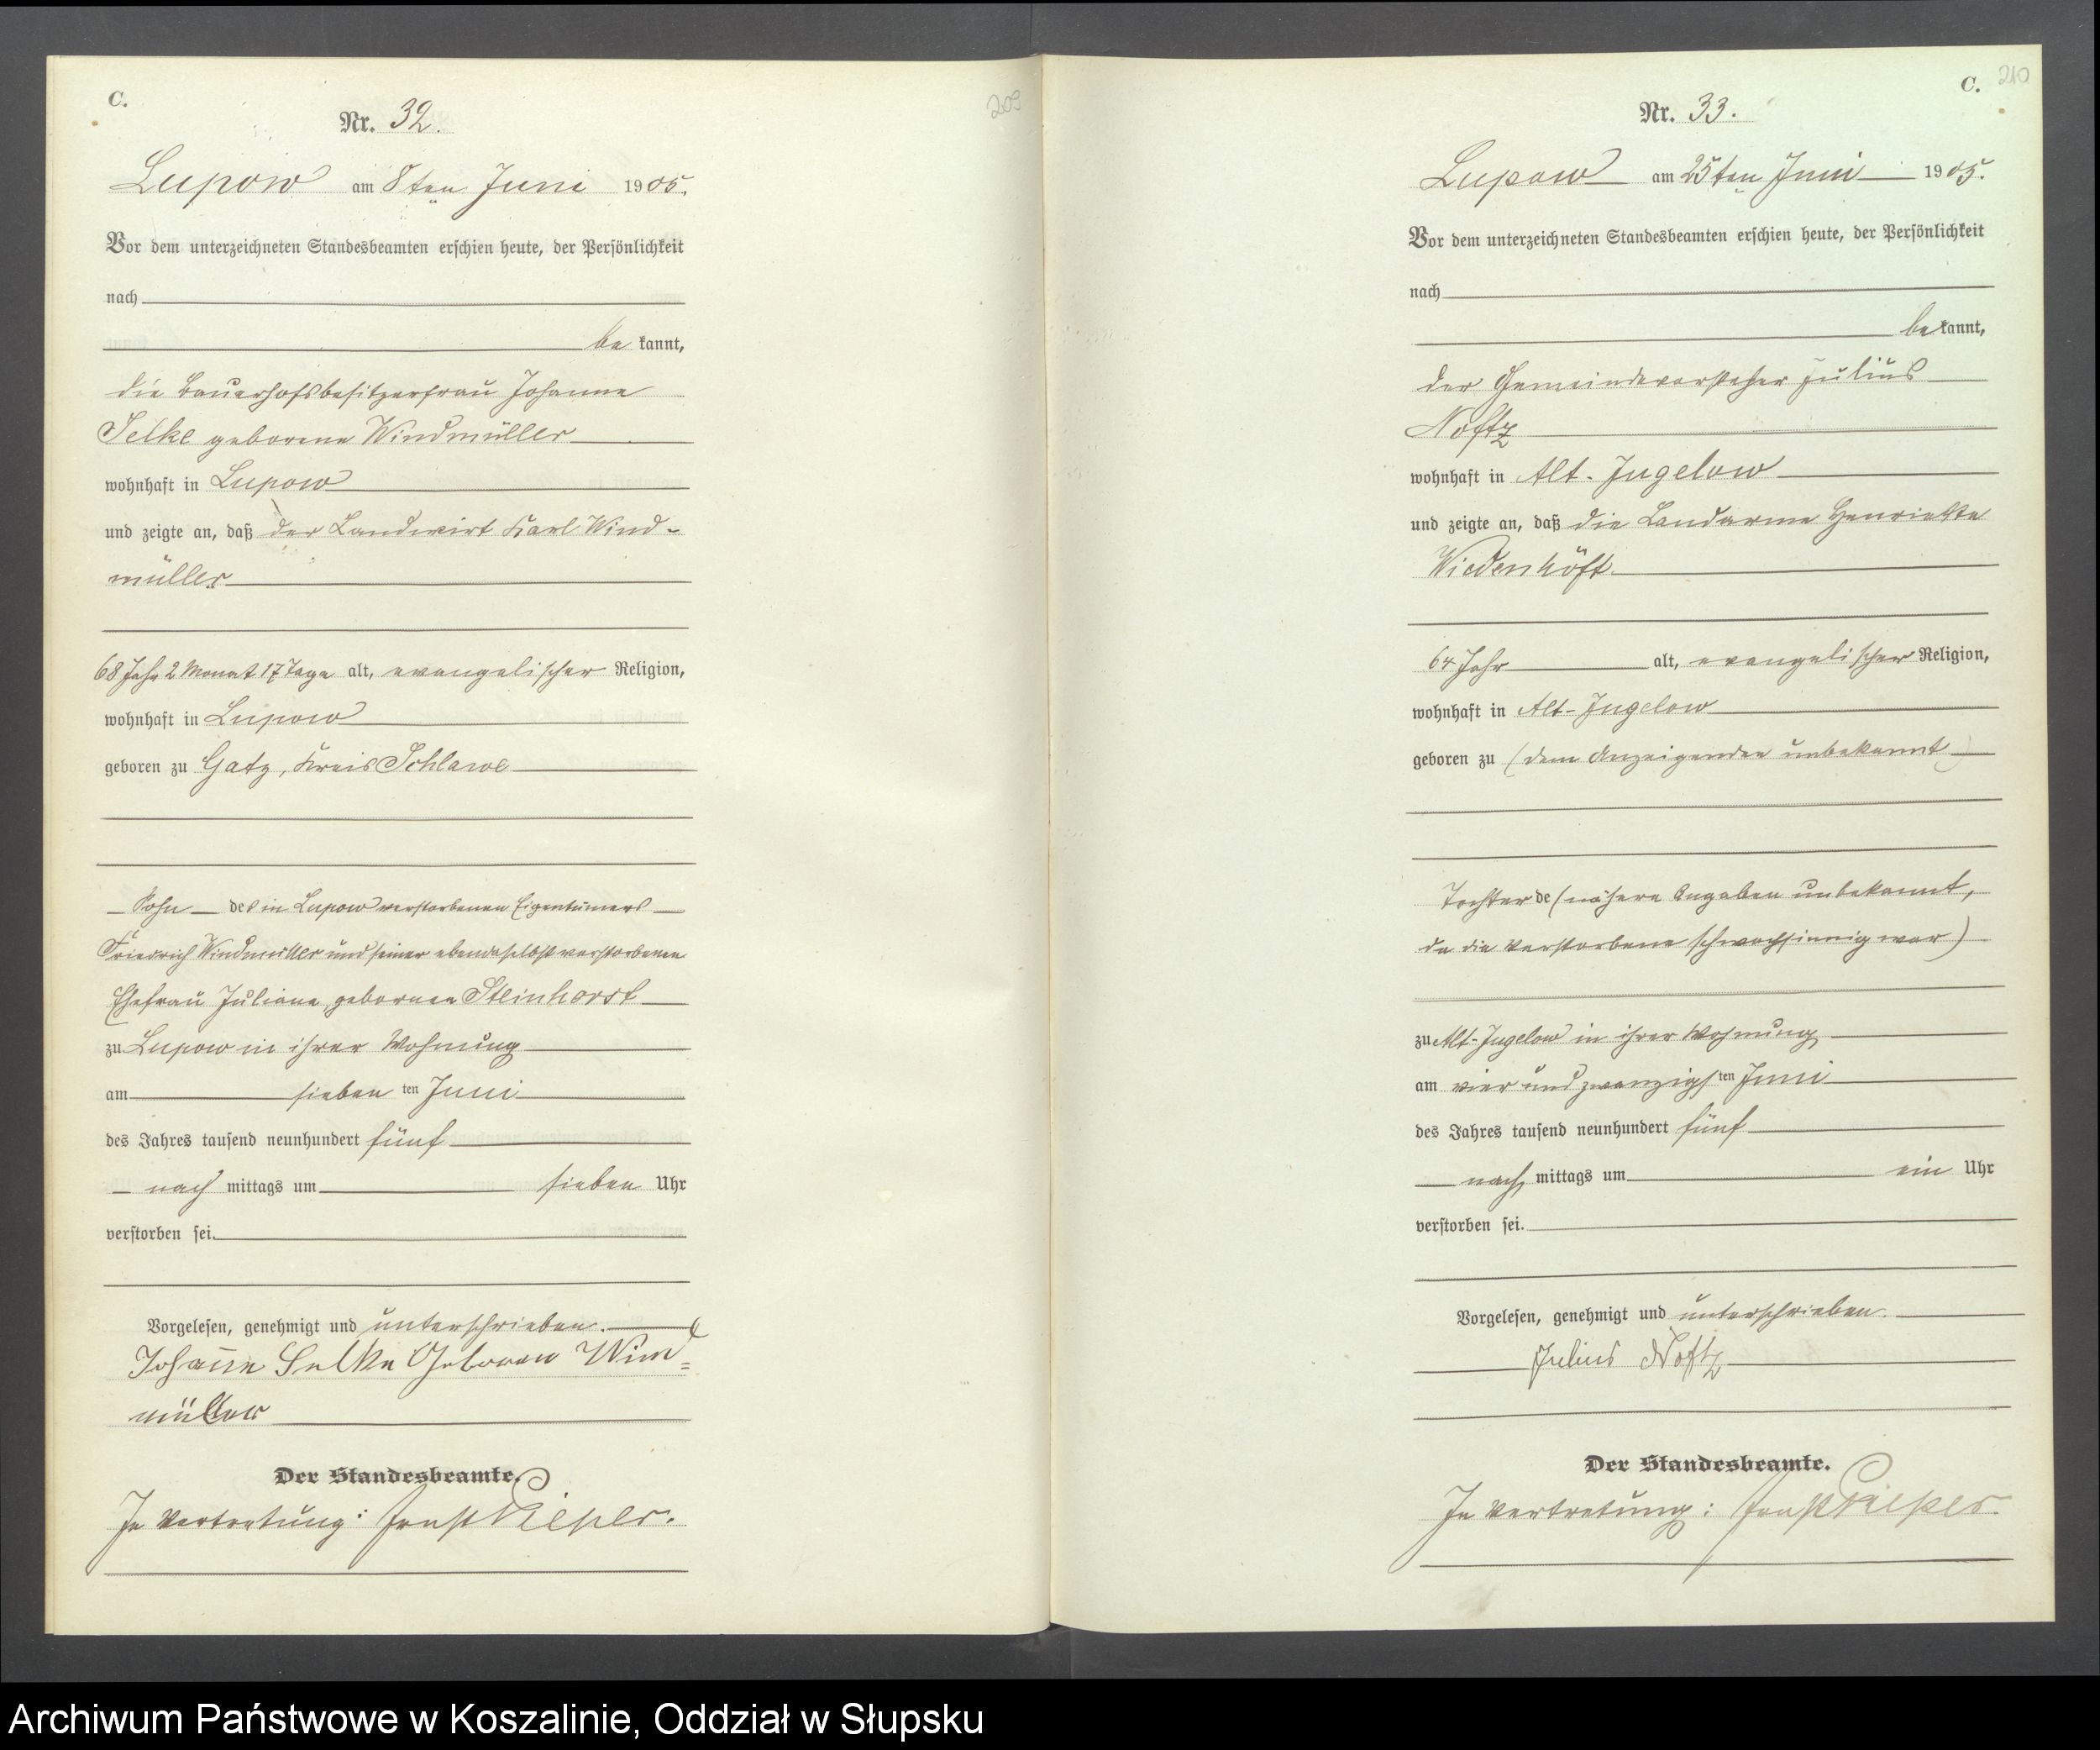 C.
209
Nr. 32.
Lupow am 8ten Juni 1905.
Vor dem unterzeichneten Standesbeamten erschien heute, der Persönlichkeit
nach
be kannt,
die Bauerhofsbesitzerfrau Johanne
Selke geborene Windmüller
wohnhaft in Lupow
und zeigte an, daß der Landwirt Karl Wind-
müller
68 Jahr 2 Monat 17 Tage alt, evangelischer Religion,
wohnhaft in Lupow
geboren zu Gatz, Kreis Schlawe
Sohn des in Lupow verstorbenen Eigentümers
Friedrich Windmüller und seiner ebendaselbst verstorbenen
Ehefrau Juliane, gebornen Steinhorst
zu Lupow in ihrer Wohnung
am sieben ten Juni
des Jahres tausend neunhundert fünf
nach mittags um sieben Uhr
verstorben sei.
Vorgelesen, genehmigt und unterschrieben.
Johanne Selke Geboren Wind=
müller
Der Standesbeamte.
In Vertretung: Ernst Pieper.
C.
210
Nr. 33.
Lupow am 25ten Juni 1905.
Vor dem unterzeichneten Standesbeamten erschien heute, der Persönlichkeit
nach
be kannt,
der Gemeindevorsteher Julius
Noffz
wohnhaft in Alt-Jugelow
und zeigte an, daß die Landarme Henriette
Wiedenhöft
64 Jahr alt, evangelischer Religion,
wohnhaft in Alt-Jugelow
geboren zu (dem Anzeigenden unbekannt)
Tochter de (nähere Angaben unbekannt,
da die Verstorbene schwachsinnig war)
zu Alt-Jugelow in ihrer Wohnung
am vier und zwanzigsten Juni
des Jahres tausend neunhundert fünf
nach mittags um ein Uhr
verstorben sei.
Vorgelesen, genehmigt und unterschrieben.
Julius Noffz
Der Standesbeamte.
In Vertretung: Ernst Pieper.
Archiwum Państwowe w Koszalinie, Oddział w Słupsku